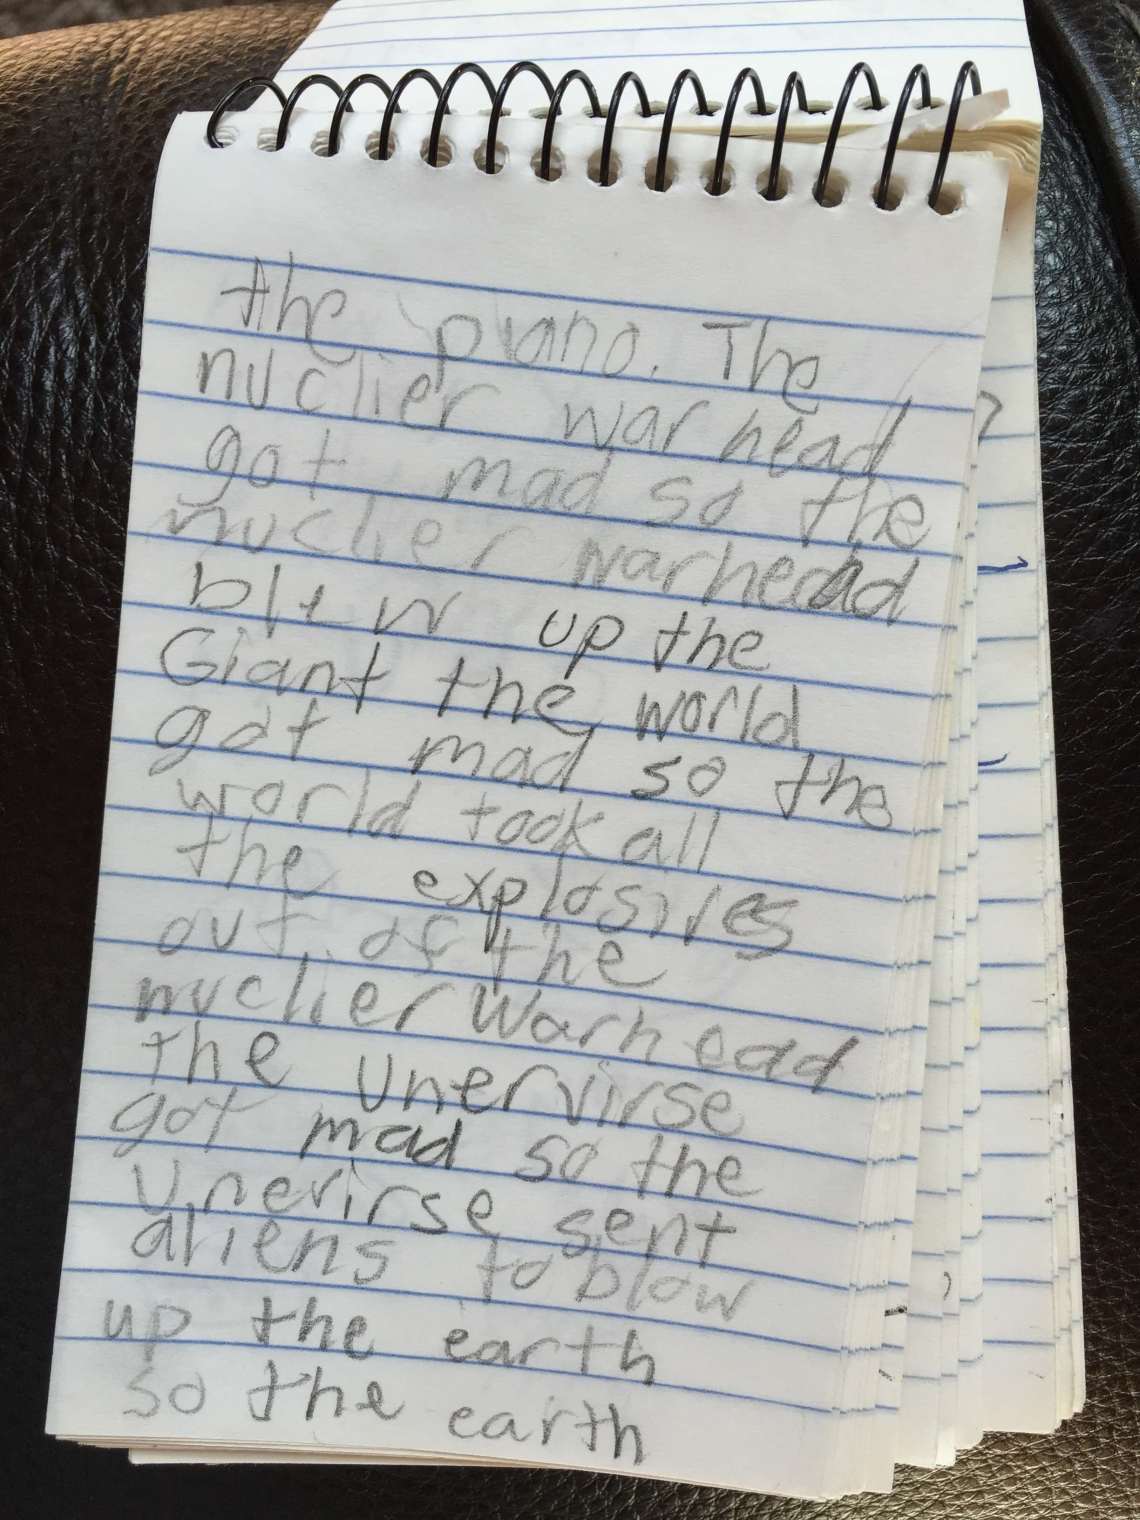 the piano. The
nuclier war head
got mad so the
nuclier warhead
blew up the
Giant the world
got mad so the
world took all
the explosives
out of the
nuclier Warhead
the Unervirse
got mad so the
Unerirse sent
aliens to blow
up the earth
so the earth